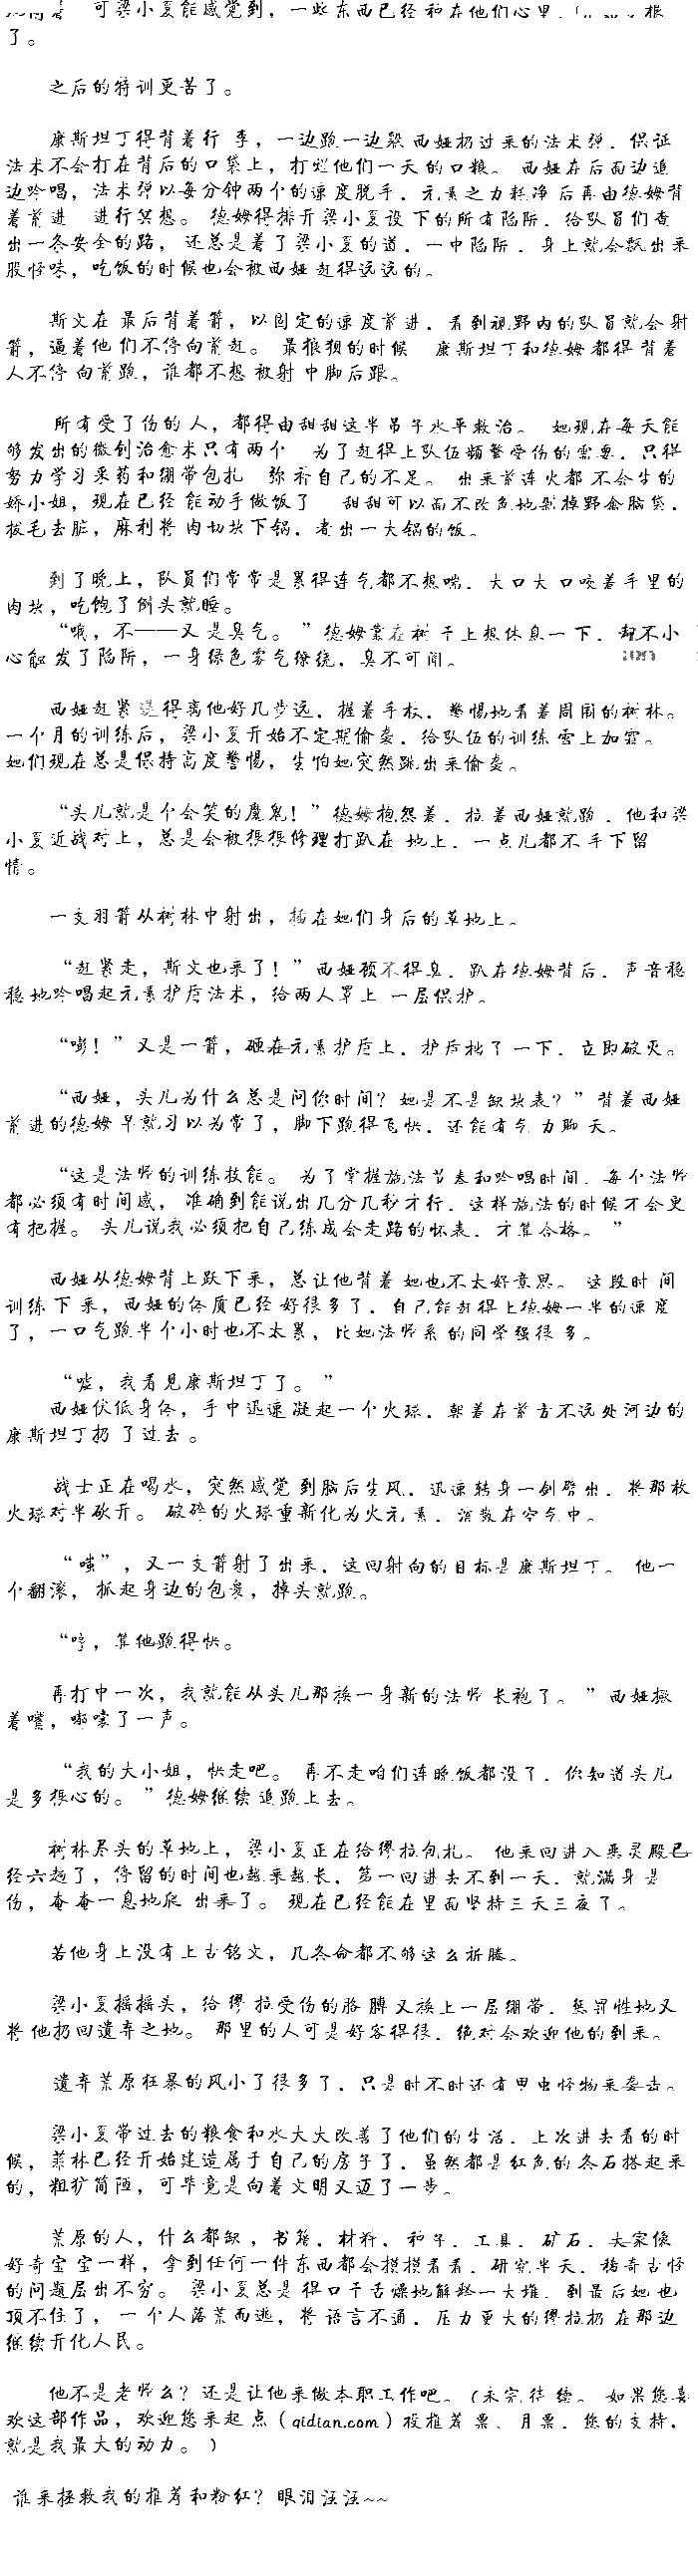 可梁小夏能感觉到，一些东西已经种在他们心里，根
了。
之后的特训更苦了。
康斯坦丁得背着行 李，一边跑一边躲 西娅扔过来的法术弹，保证
法术不会打在背后的口袋上，打烂他们一天的口粮。 西娅在后面边追
边吟唱，法术弹以每分钟两个的速度脱手，元素之力耗净后再由德姆背
着前进 进行冥想。 德姆得排开梁小夏设 下的所有陷阱，给队员们查
出一条安全的路， 还总是着了梁小夏的道，一中陷阱，身上就会飘出来
股怪味，吃饭的时候也会被西娅 赶得远远的。
斯文在 最后背着箭，以固定的速度前进，看到视野内的队员就会射
箭，逼着他们不停向前赶。 最狼狈的时候 康斯坦丁和德姆都得背着
人不停 向前跑，谁都不想 被射 中脚后跟。
所有受了伤的人，都得由甜甜这半吊子水平救治。 她现在每天能
够发出的微创治愈术只有两个 为了赶得上队伍频繁受伤的需要，只得
努力学习采药和绷带包扎 弥补自己的不足。 出来前连火都 不会生的
娇小姐，现在已经 能动手做饭了 甜甜可以面不改色地剁掉野禽脑袋，
拔毛去脏，麻利将肉切块下锅，煮出一大锅的饭。
到了晚上，队员们常常是累得连气都不想喘，大口大口咬着手里的
肉块，吃饱了倒头就睡。
“哦，不——又是臭气。 ”德姆靠在树干上想休息一下，却不小
心触 发了陷阱，一身绿色雾气缭绕，臭不可闻。
西娅赶紧 逃得离他好几步远，握着手杖，警惕地看着周围的树林。
一个月的训练后，梁小夏开始不定期偷袭，给队伍的训练雪上加霜。
她们现在总是保持高度警惕，生怕她突然跳出来偷袭。
“头儿就是个会笑的魔鬼！”德姆抱怨着，拉着西娅就跑，他和梁
小夏近战对上，总是会被狠狠修理打趴在 地上，一点儿都不手下留
情。
一支羽箭从树林中射出，插在她们身后的草地上。
“赶紧走，斯文也来了！”西娅顾不得臭，趴在德姆背后，声音稳
稳地吟唱起元素护盾法术，给两人罩上 一层保护。
“嘭！”又是一箭，砸在元素护盾上，护盾抖了一下，立即破灭。
“西娅，头儿为什么总是问你时间？她是不是缺块表？”背着西娅
前进的德姆早就习以为常了，脚下跑得飞快，还能有气力聊天。
“这是法师的训练技能。 为了掌握施法节奏和吟唱时间，每个法师
都必须有时间感， 准确到能说出几分几秒才行，这样施法的时候才会更
有把握。 头儿说我必须把自己练成会走路的怀表，才算合格。 ”
西娅从德姆背上跃下来，总让他背着 她也不太好意思。 这段时 间
训练下来，西娅的体质已经 好很多了，自己能赶得上德姆一半的速度
了，一口气跑半个小时也不太累，比她法师系的同学强很多。
“嘘，我看见康斯坦丁了。 ”
西娅伏低身体，手中迅速 凝起一个火球，朝着在前方不远处河边的
康斯坦丁扔 了过去。
战士正在喝水，突然感觉 到脑后生风，迅速转身一剑劈出，将那枚
火球对半砍开。 破碎的火球重新化为火元素，消散在空气中。
“嗤”，又一支箭射了出来，这回射向的目标是康斯坦丁。 他一
个翻滚，抓起身边的包裹，掉头就跑。
“哼，算他跑得快。
再打中一次，我就能从头儿那换一身新的法师 长袍了。 ”西娅撅
着嘴，嘟囔了一声。
“我的大小姐，快走吧。 再不走咱们连晚饭都没了，你知道头儿
是多狠心的。 ”德姆继续追跑上去。
树林尽头的草地上，梁小夏正在给缪拉包扎。 他来回进入死灵殿已
经六趟了，停留的时间也越来越长，第一回进去不到一天，就满身是
伤，奄奄一息地爬 出来了。 现在已经能在里面坚持三天三夜了。
若他身上没有上古铭文，几条命都不够这么折腾。
梁小夏摇摇头，给缪 拉受伤的胳膊又换上一层绷带，惩罚性地又
将他扔回遗弃之地。 那里的人可是好客得很，绝对会欢迎他的到来。
遗弃荒原狂暴的风小了很多了，只是时不时还有甲虫怪物来袭击。
梁小夏带过去的粮食和水大大改善了他们的生活，上次进去看的时
候，菲林已经开始建造属于自己的房子了，虽然都是红色的条石搭起来
的，粗犷简陋，可毕竟是向着文明又迈了一步。
荒原的人，什么都缺，书籍，材料，种子，工具，矿石，大家像
好奇宝宝一样，拿到任何一件东西都会摸摸看看，研究半天，稀奇古怪
的问题层出不穷。 梁小夏总是得口干舌燥地解释一大堆，到最后她也
顶不住了， 一个人落荒而逃，将语言不通，压力更大的缪拉扔 在那边
继续开化人民。
他不是老师么？还是让他来做本职工作吧。（未完待续。 如果您喜
欢这部作品，欢迎您来起点（qidian.com）投推荐票、月票，您的支持，
就是我最大的动力。）
谁来拯救我的推荐和粉红？眼泪汪汪~~